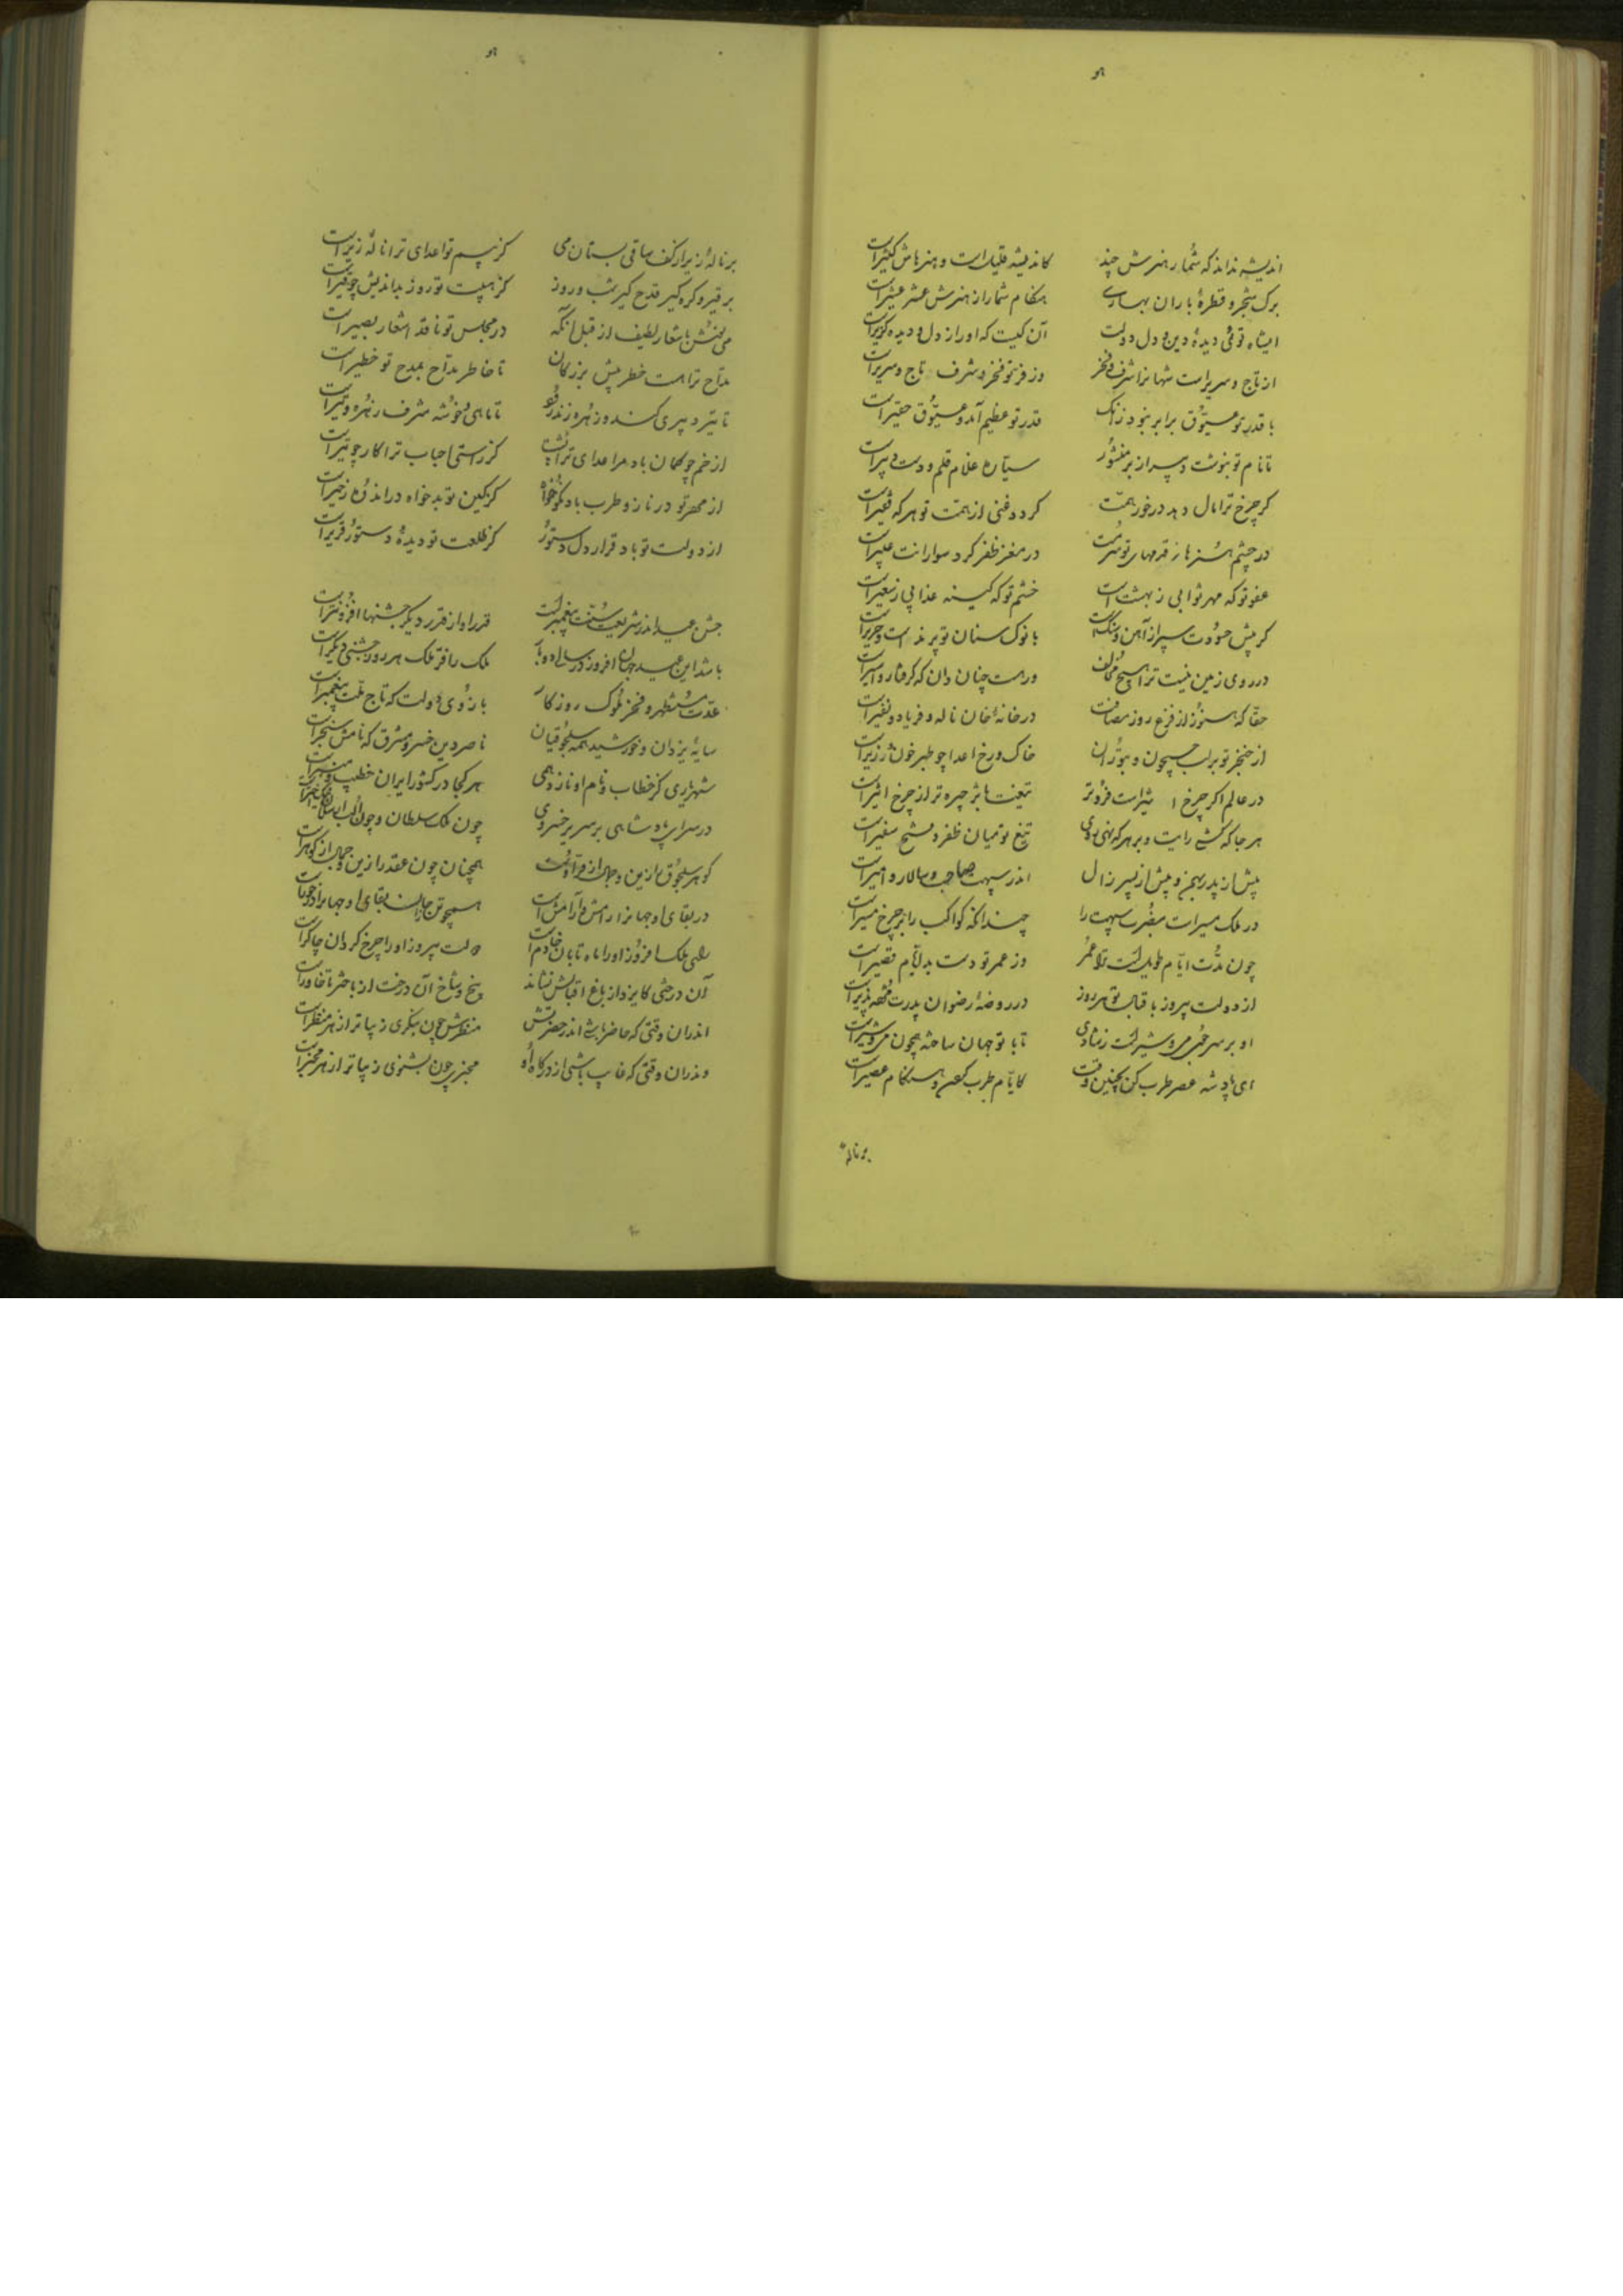 اندیشه نداند که شمار هنرش چند
کاندیشه قلیل است و هنرهاش کثیر است
برگ شجر و قطرهٔ باران بهاری
هنگام شمار از هنرش عشر عشیر است
ایشاه توئی دیدهٔ دین و دل دولت
آن کیست که او را ز دل و دیده گزیر است
از تاج و سریر است شهانرا شرف و فخر
وز فر تو فخر و شرف تاج و سریر است
با قدر تو عیّوق برابر نبود زانک
قدر تو عظیم آمد و عیّوق حقیر است
تا نام تو بنوشت
سیاره غلام قلم و دست دبیر است
گر چرخ ترا مال دهد درخور همّت
گردد غنی از همّت تو هر که فقیر است
در چشم هنرها ز قدمهای تو
در مغز ظفر گرد سوارانت عبیر است
عفو تو که مهر ثوابی ز بهشت است
خشم تو که کینه عذابی ز سعیر است
گر پیش حسودت سپر از آهن و سنگ است
با نوک سنان تو پرند است و حریر است
در روی زمین نیست ترا هیچ مخالف
ور هست چنان دان که گرفتار و اسیر است
حقّا که هنوز از فزع روز مصافت
در خانهٔ خان ناله و فریاد و نفیر است
از خنجر تو بر لب جیحون
خاک و رخ اعدا چو طبر خون و زریر است
در عالم اگر چرخ اثیر است فزوتر
تیغت باثر چیره تر از چرخ اثیر است
هر جا که کشی رایت و بر هر که نهی روی
تیغ تو میان ظفر و فتح سفیر است
پیش از پدر بهمن و پیش از پسر زال
اندر سپهت حاجب و سالار و امیر است
در ملک مسیر است سپهت را
چندانکه کواکب را بر چرخ مسیر است
چون مدّت ایّام طویل است ترا عمر
وز عمر تو دست بد ایّام قصیر است
از دولت پیروز باقبال تو هر روز
در روضهٔ رضوان پدرت
او بر سر می و شیر است ز شادی
تا با تو جهان ساخته همچون می و شیر است
ای پادشه عصر طرب کن بچنین وقت
کایّام طرب کردن و هنگام عصیر است
بر نالهٔ
بر نالهٔ زیر از کف ساقی بستان می
کز بیم تو اعدای ترا نالهٔ زیر است
بر قیر و کره گیر قدح گیر شب و روز
کز هیبت تو روز بداندیش چو قیر است
می نوش باشعار لطیف از قبل آنکه
در مجلس تو ناقد اشعار بصیر است
مدّاح ترا هست خطر پیش بزرگان
تا خاطر مدّاح بمدح تو خطیر است
تا تیر دبیری کند و زهره زند
تا ماهی و خوشه شرف زهره و تیر است
از خم چو کمان باد مر اعدای ترا پشت
کز راستی احباب ترا کار چو تیر است
از مهر تو در ناز و طرب باد نکوخواه
کز کین تو بدخواه در اندوه و زحیر است
از دولت تو باد قرار دل دستور
کز طلعت تو دیدهٔ دستور قریر است
جشن عید اندر شریعت سنّت پیغمبر است
قدر او از قدر دیگر جشنها افزونتر است
باشد این عید جهان افروز در سالی دو بار
ملک را فرّ ملک هر روز جشنی دیگر است
عدّت مستظهر و فخر ملوک روزگار
بازوی دولت که تاج ملّت پیغمبر است
سایهٔ یزدان و خورشید همه سلجوقیان
ناصر دین خسرو مشرق که نامش سنجر است
شهریاری کز خطاب و نام او نازد همی
هر کجا در کشور ایران خطیب و منبر است
در سرای پادشاهی بر سریر خسروی
چون ملک سلطان و چون الب ارسلان
گوهر سلجوق را زین و جمال از فرّ اوست
همچنان چون عقد را زین و جمال از گوهر است
در بقای او جهانرا رامش و آرامش است
همچو تن جانرا بقای او جهانرا درخور است
رای ملک افروز او را ماه تابان خادم است
دولت پیروز او را چرخ گردان چاکر است
آن درختی کایزد از باغ اقبالش نشاند
بیخ و شاخ آن درخت از باختر تا خاور است
اندران وقتی که حاضر باشی اندر حضرتش
منظرش چون بنگری زیباتر از هر منظر است
وندران وقتی که غایب باشی از درگاه او
مخبرش چون بشنوی زیباتر از هر مخبر است